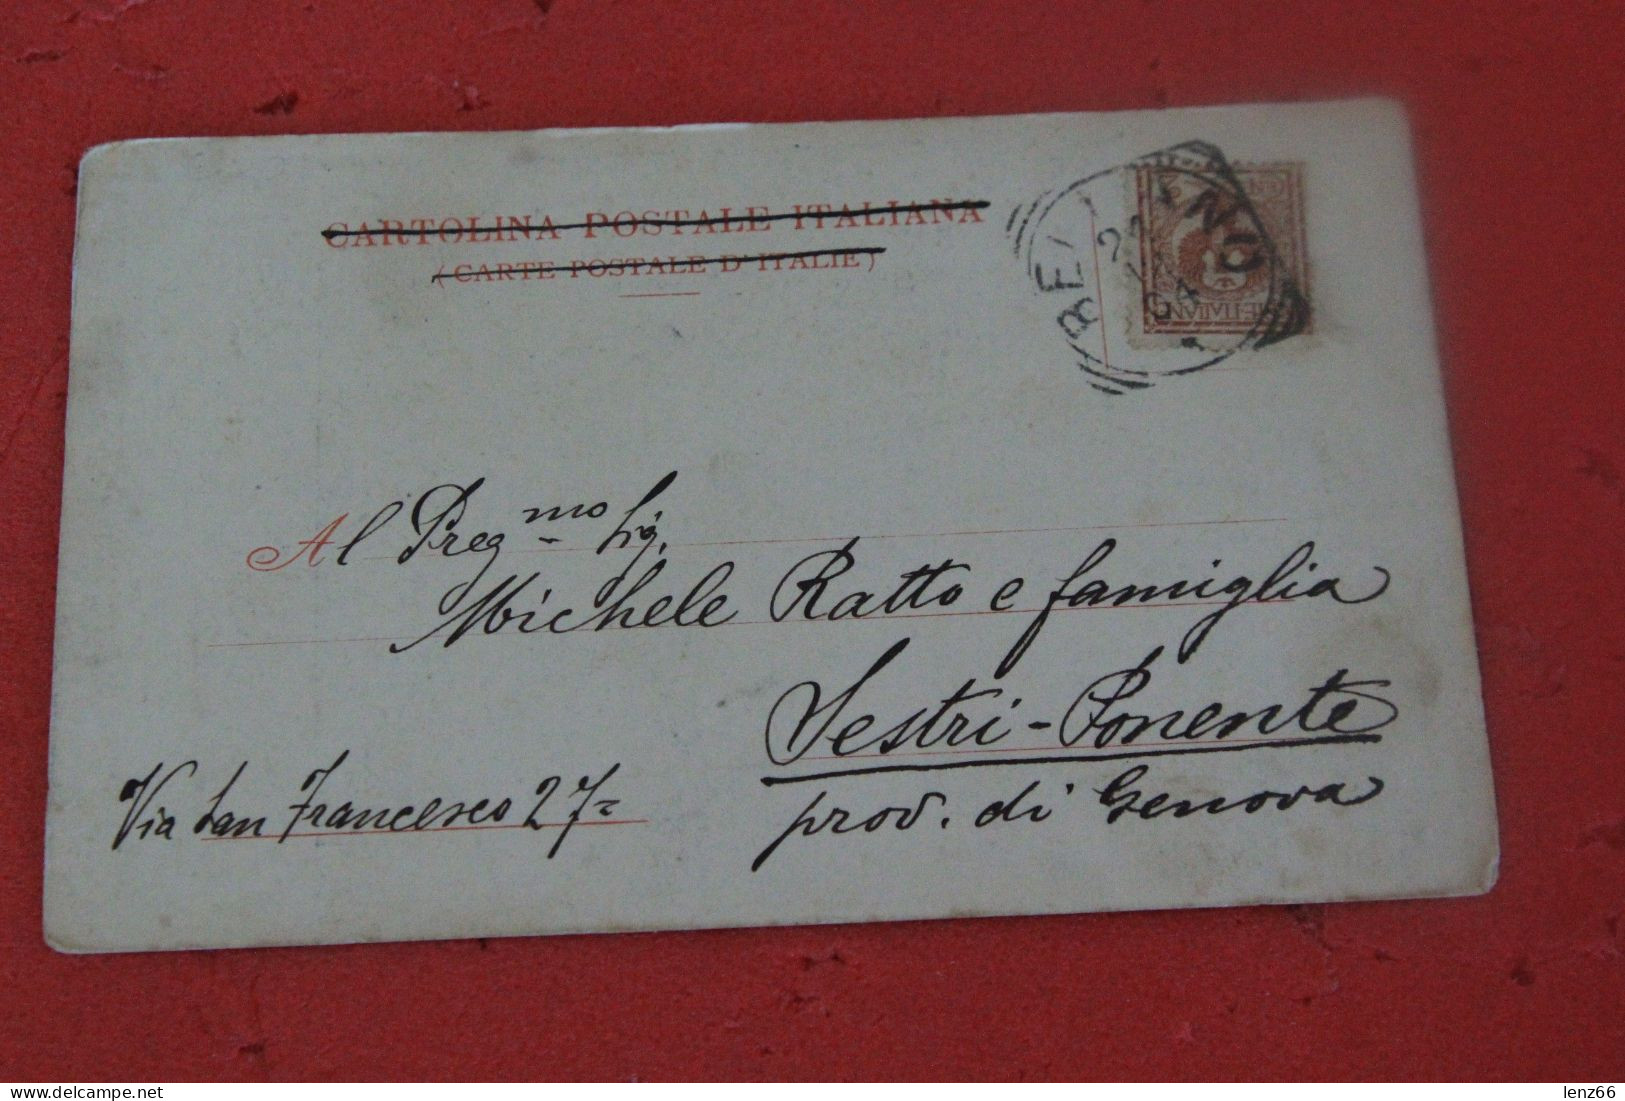 CARTOLINA POSTALE ITALIANA
(CARTE POSTALE D'ITALIE)
Al Preg.mo Sig.
Michele Ratto e famiglia
Sestri-Ponente
prov. di Genova
Via San Francesco 27
lenz66